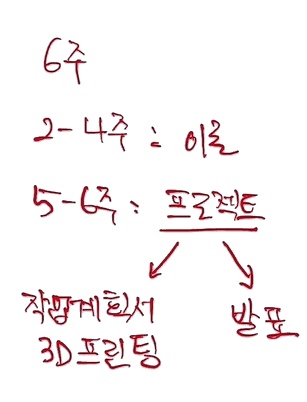 6주
2-4주 : 이론
5-6주 : 프로젝트
작업계획서
3D프린팅
발표